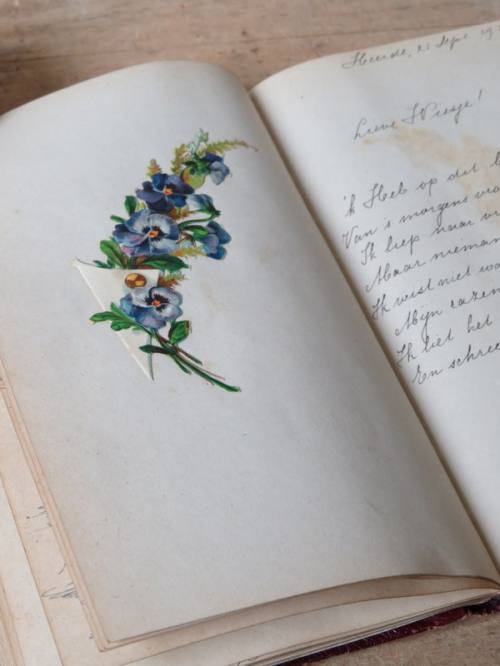 Heerde, 21 Sept. 19
Lieve Wiesje!
'k Heb op dit b
Van 's morgens vro
Ik liep naar
Maar nieman
Ik wist niet wa
Mijn
Ik liet het
En schree